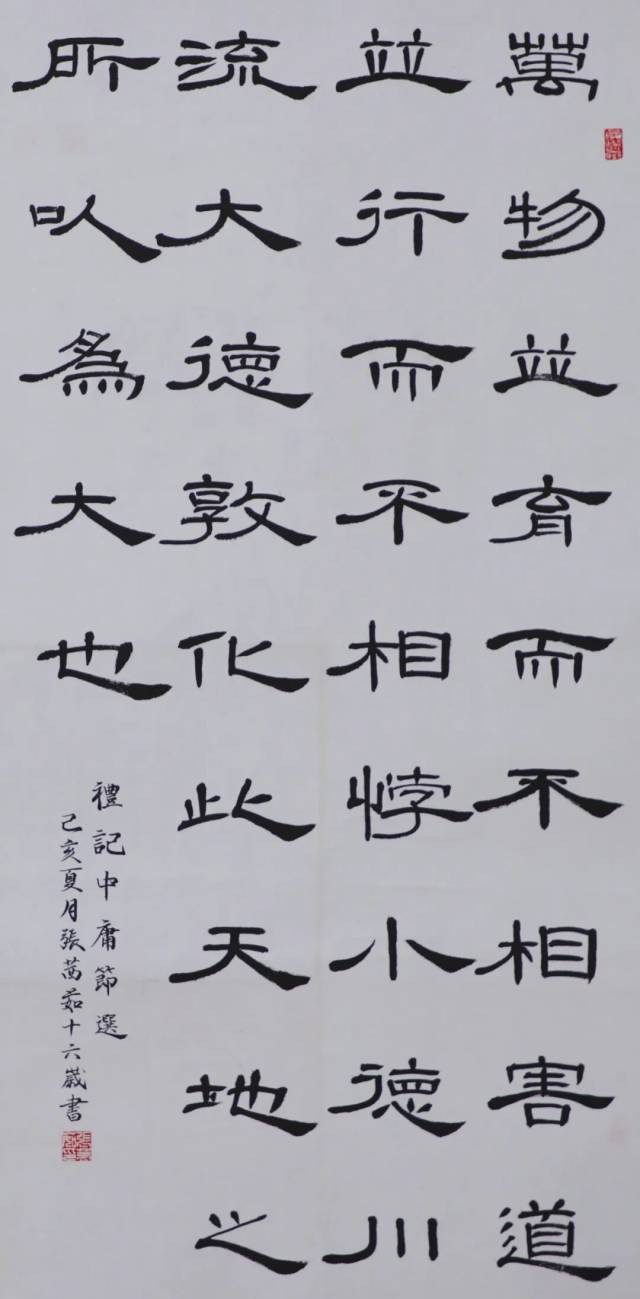 萬物並育而不相害道
並行而不相悖小德川
流大德敦化此天地之
所以為大也
禮記中庸節選
己亥夏月張茜茹十六歲書